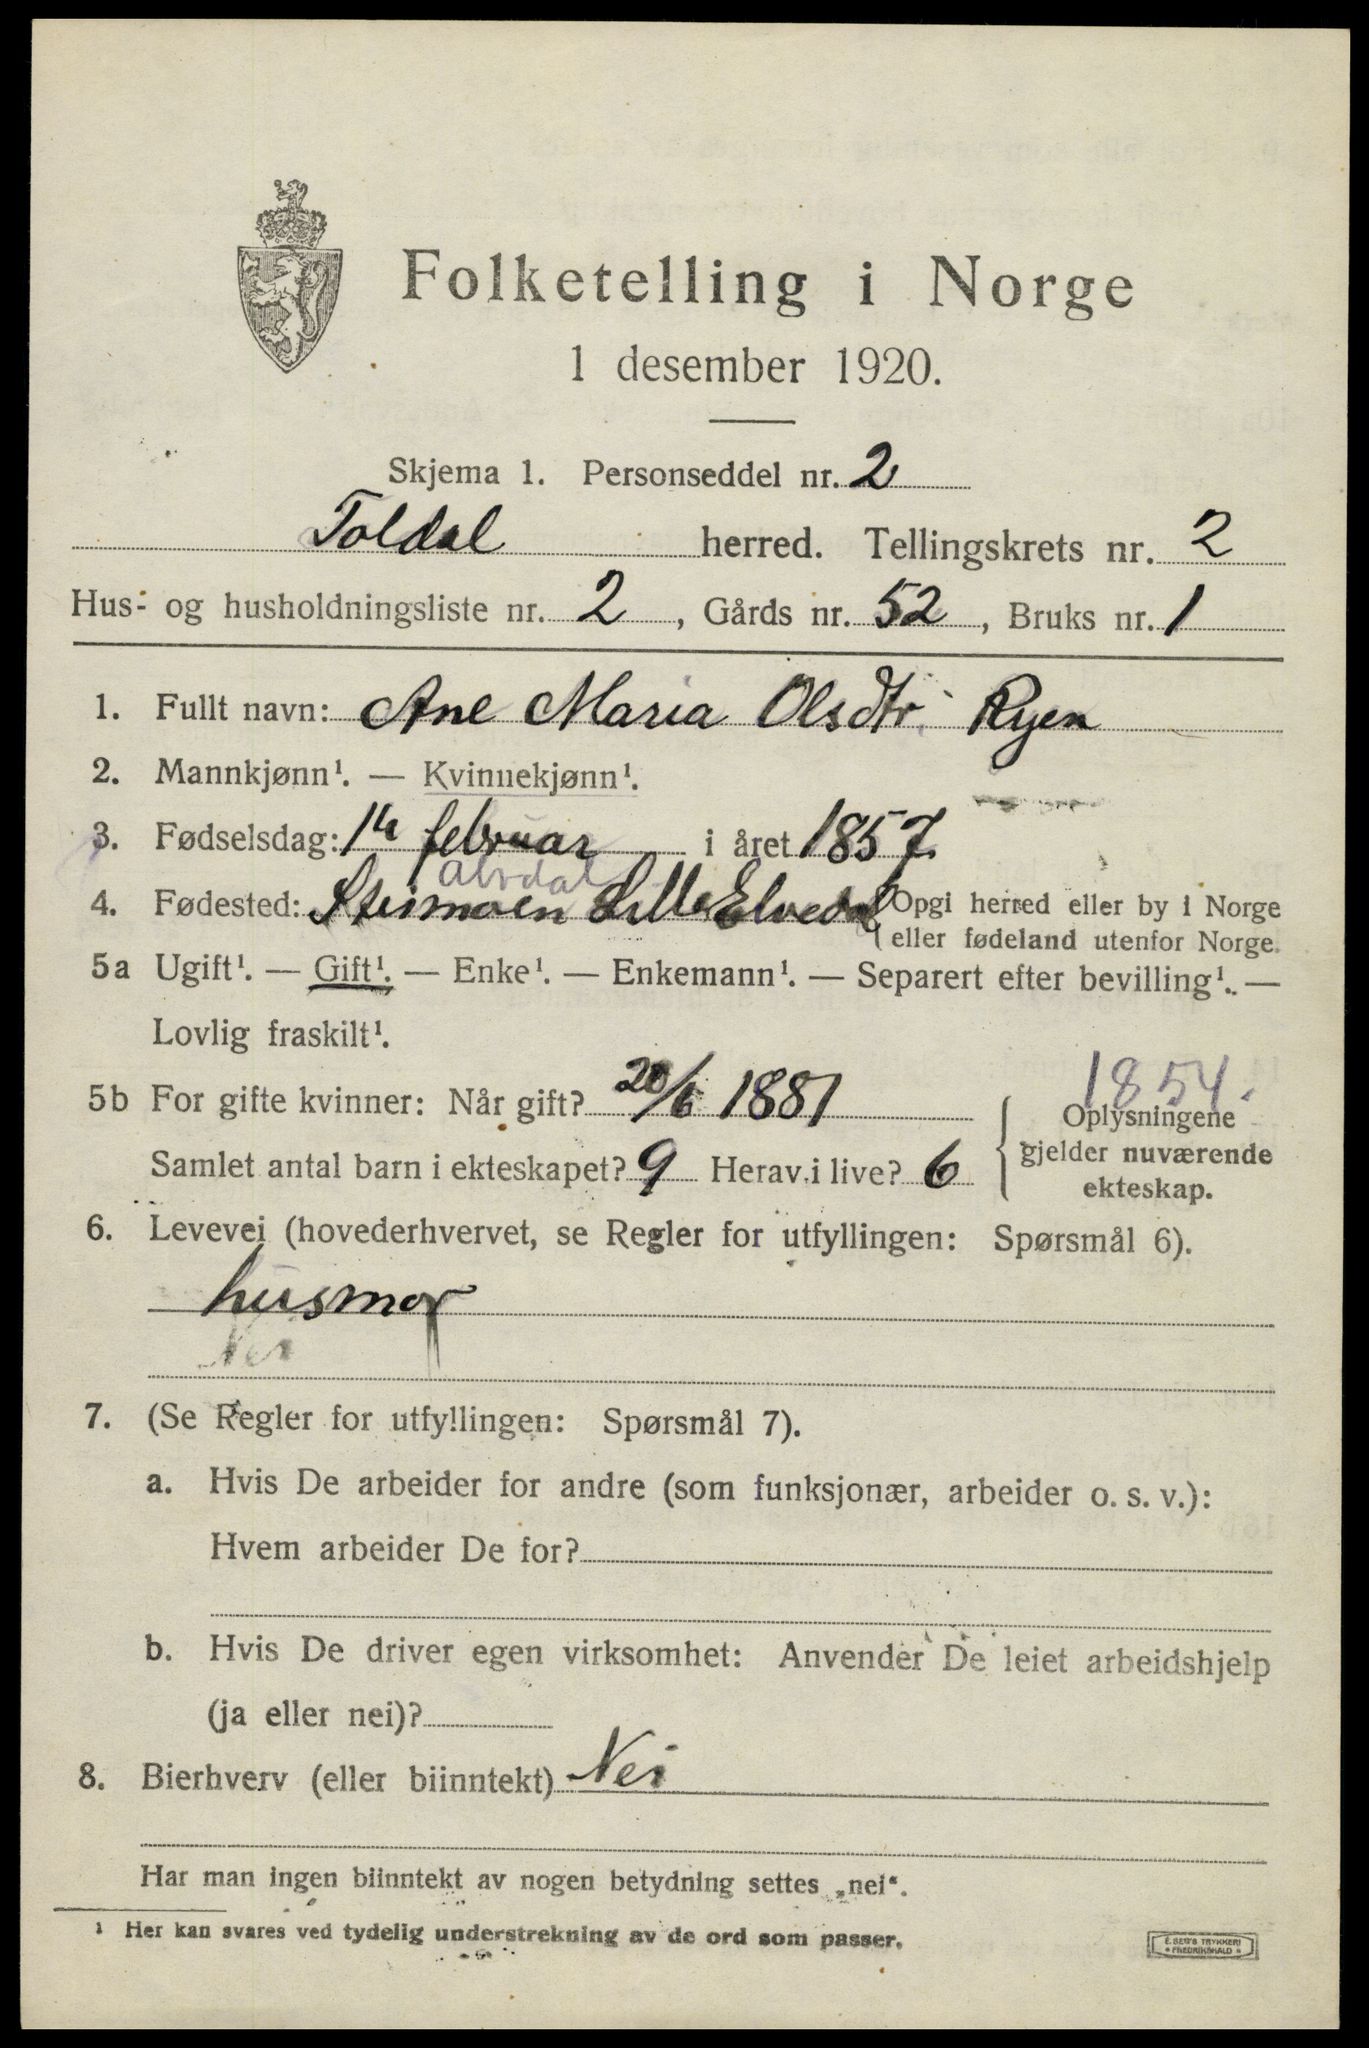 Folketelling i Norge
1 desember 1920.
Skjema 1. Personseddel nr. 2
Toldal herred. Tellingskrets nr. 2
Hus- og husholdningsliste nr. 2, Gårds nr. 52, Bruks nr. 1
1. Fullt navn: Ane Maria Olsdtr. Ryen
2. Mannkjønn¹. — Kvinnekjønn¹.
3. Fødselsdag: 14 februar i året 1857.
Alvdal
4. Fødested: Steimoen Lille Elvedal Opgi herred eller by i Norge
eller fødeland utenfor Norge.
5a Ugift¹. — Gift¹. — Enke¹. — Enkemann¹. — Separert efter bevilling¹. —
Lovlig fraskilt¹.
1854.
5b For gifte kvinner: Når gift? 20/6 1881 Oplysningene
Samlet antal barn i ekteskapet? 9 Herav i live? 6 gjelder nuværende
ekteskap.
6. Levevei (hovederhvervet, se Regler for utfyllingen: Spørsmål 6).
husmor
Nei
7. (Se Regler for utfyllingen: Spørsmål 7).
a. Hvis De arbeider for andre (som funksjonær, arbeider o. s. v.):
Hvem arbeider De for?
b. Hvis De driver egen virksomhet: Anvender De leiet arbeidshjelp
(ja eller nei)?
8. Bierhverv (eller biinntekt) Nei
Har man ingen biinntekt av nogen betydning settes „nei“.
¹ Her kan svares ved tydelig understrekning av de ord som passer.
E. SEM'S TRYKKERI
* FREDRIKSHALD *